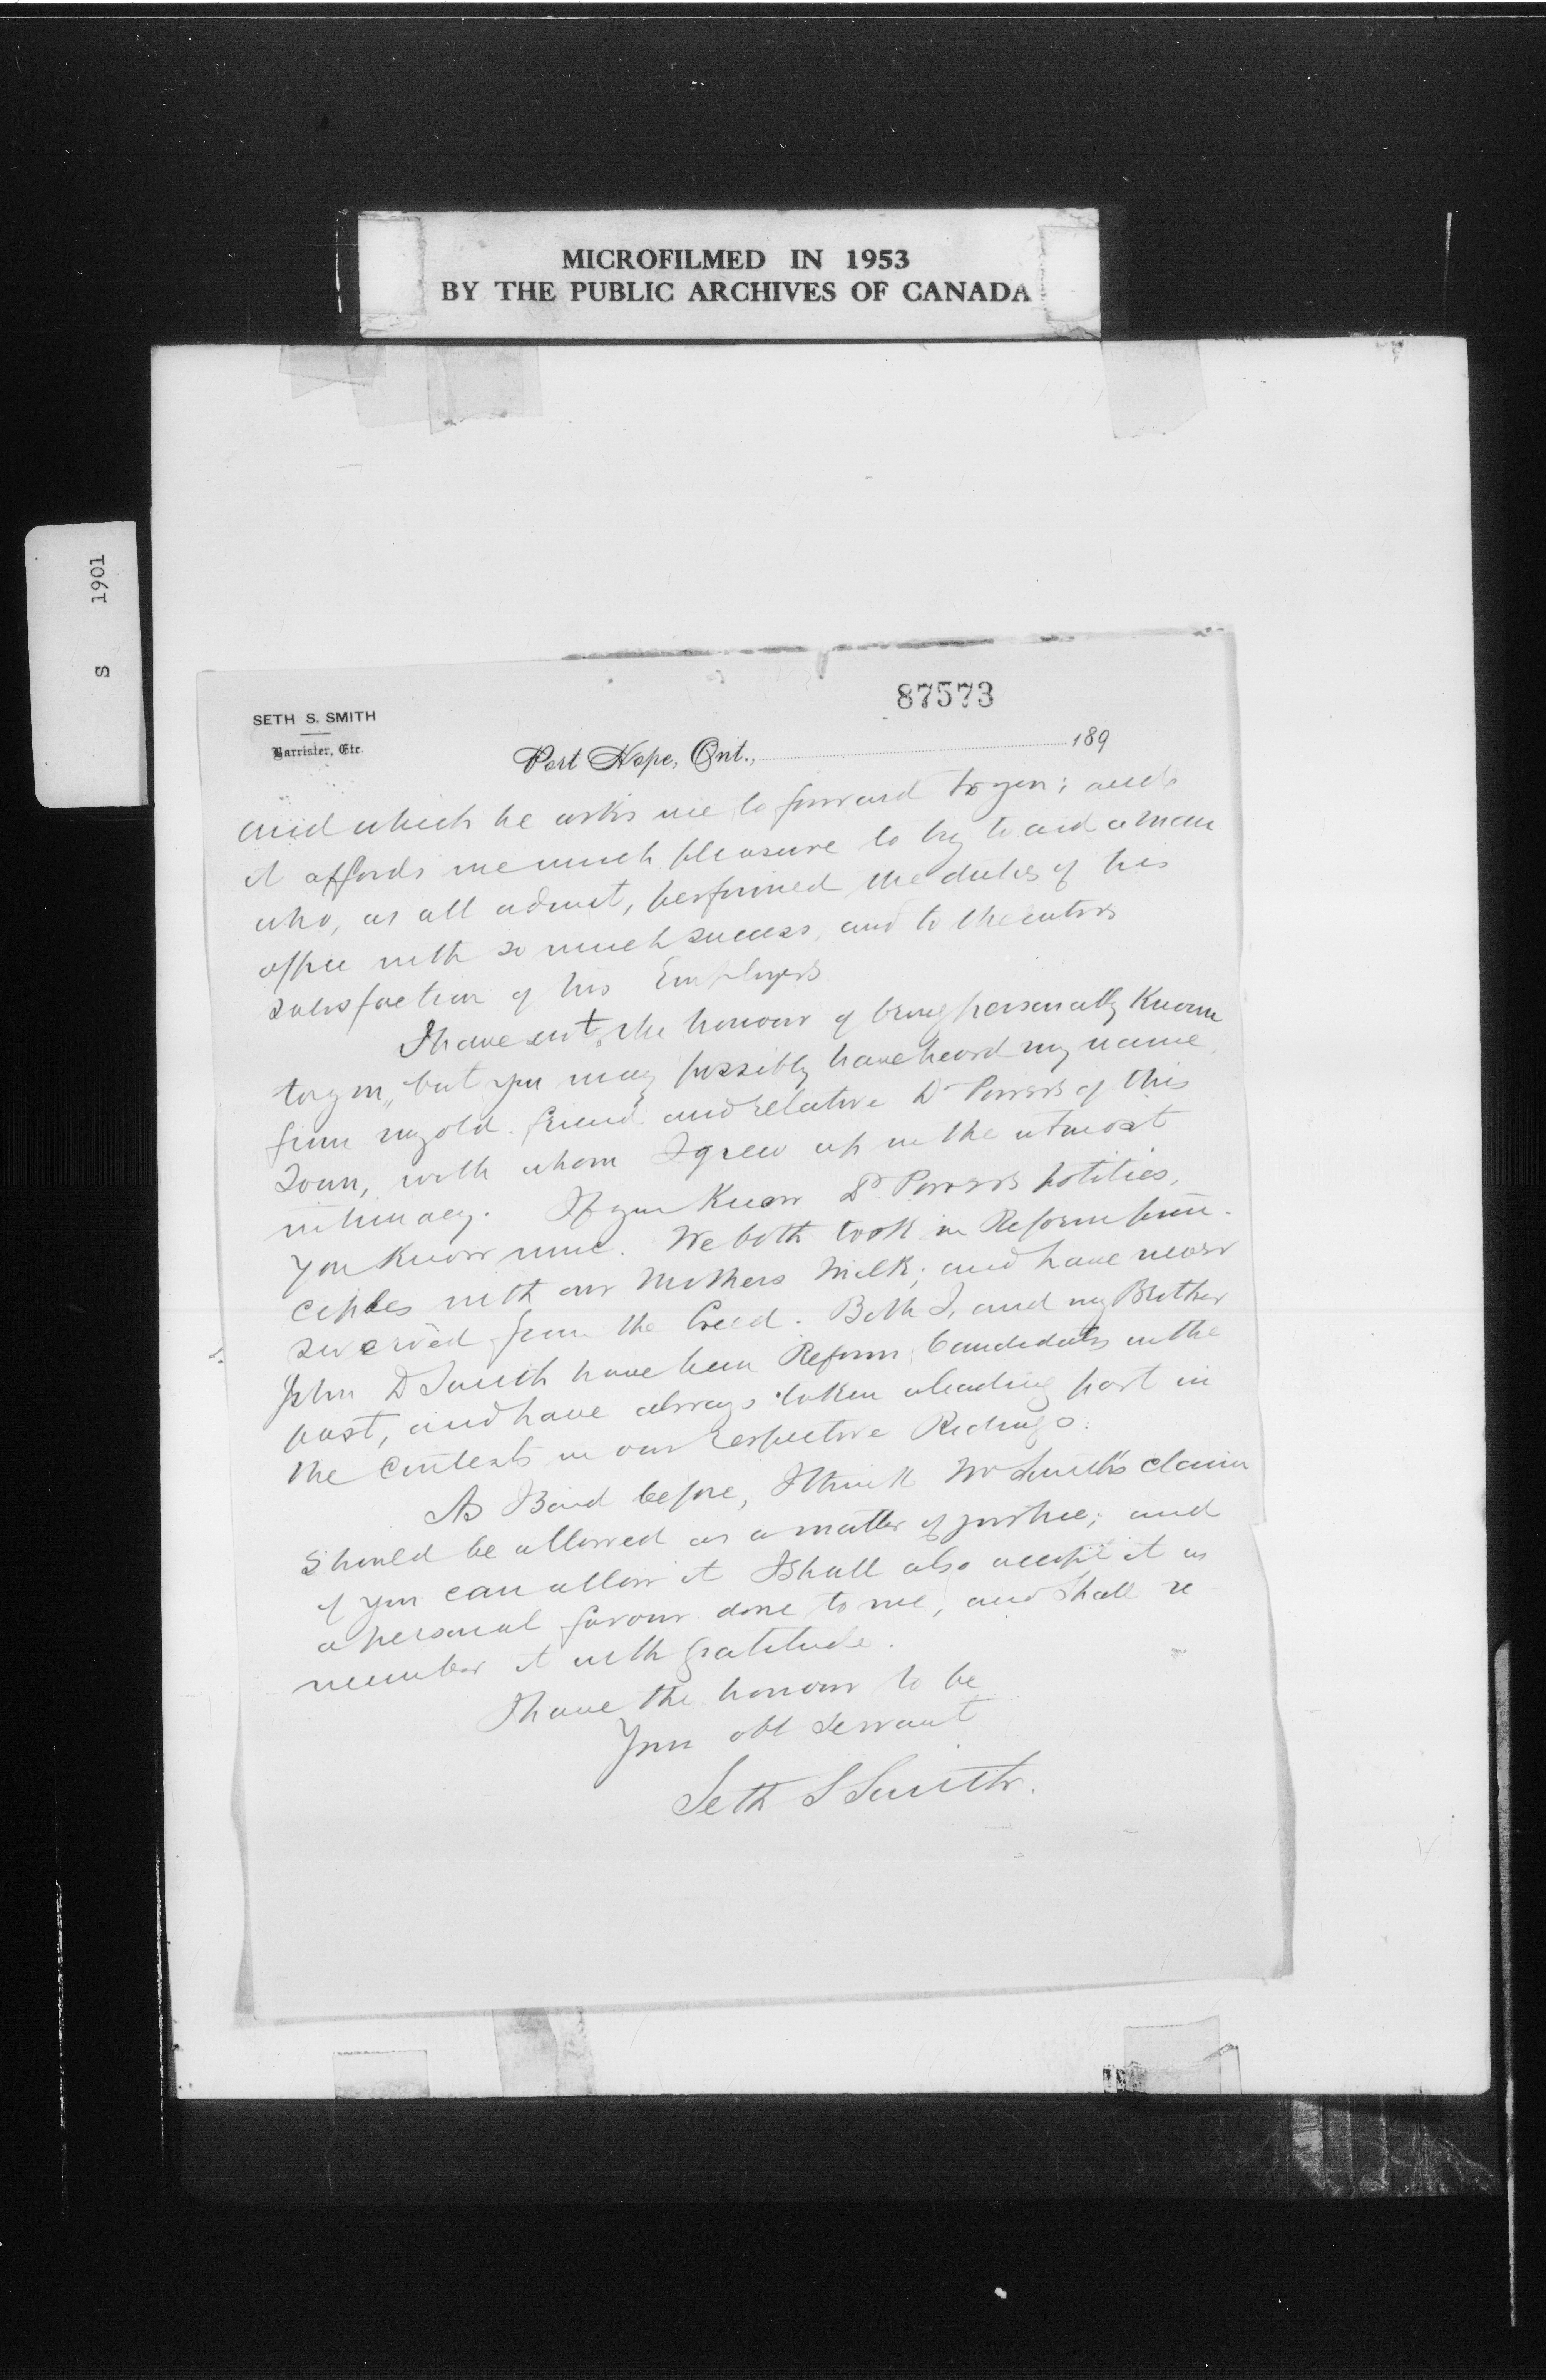 MICROFILMED IN 1953
BY THE PUBLIC ARCHIVES OF CANADA
S 1901
87573
SETH S. SMITH
Barrister, Etc.
Port Hope, Ont., 189
and which he asks me to forward to you; and
it affords me much pleasure to try to aid a man
who, as all admit, performed the duties of his
office with so much success, and to the entire
satisfaction of his Employers
I have not the honour of being personally known
to you, but you may possibly have heard my name
from my old friend and relative Dr Powers of this
Town, with whom I grew up in the utmost
intimacy. If you know Dr Powers politics,
you know mine. We both took in Reform prin-
ciples with our Mothers milk; and have never
swerved from the Creed. Both I, and my Brother
John D Smith have been Reform Candidates in the
past, and have always taken a leading part in
the Contests in our respective Ridings.
As I said before, I think Mr Smith's claim
should be allowed as a matter of justice; and
if you can allow it I shall also accept it as
a personal favour done to me, and shall re
member it with gratitude.
I have the honour to be
Your obt servant
Seth S Smith.